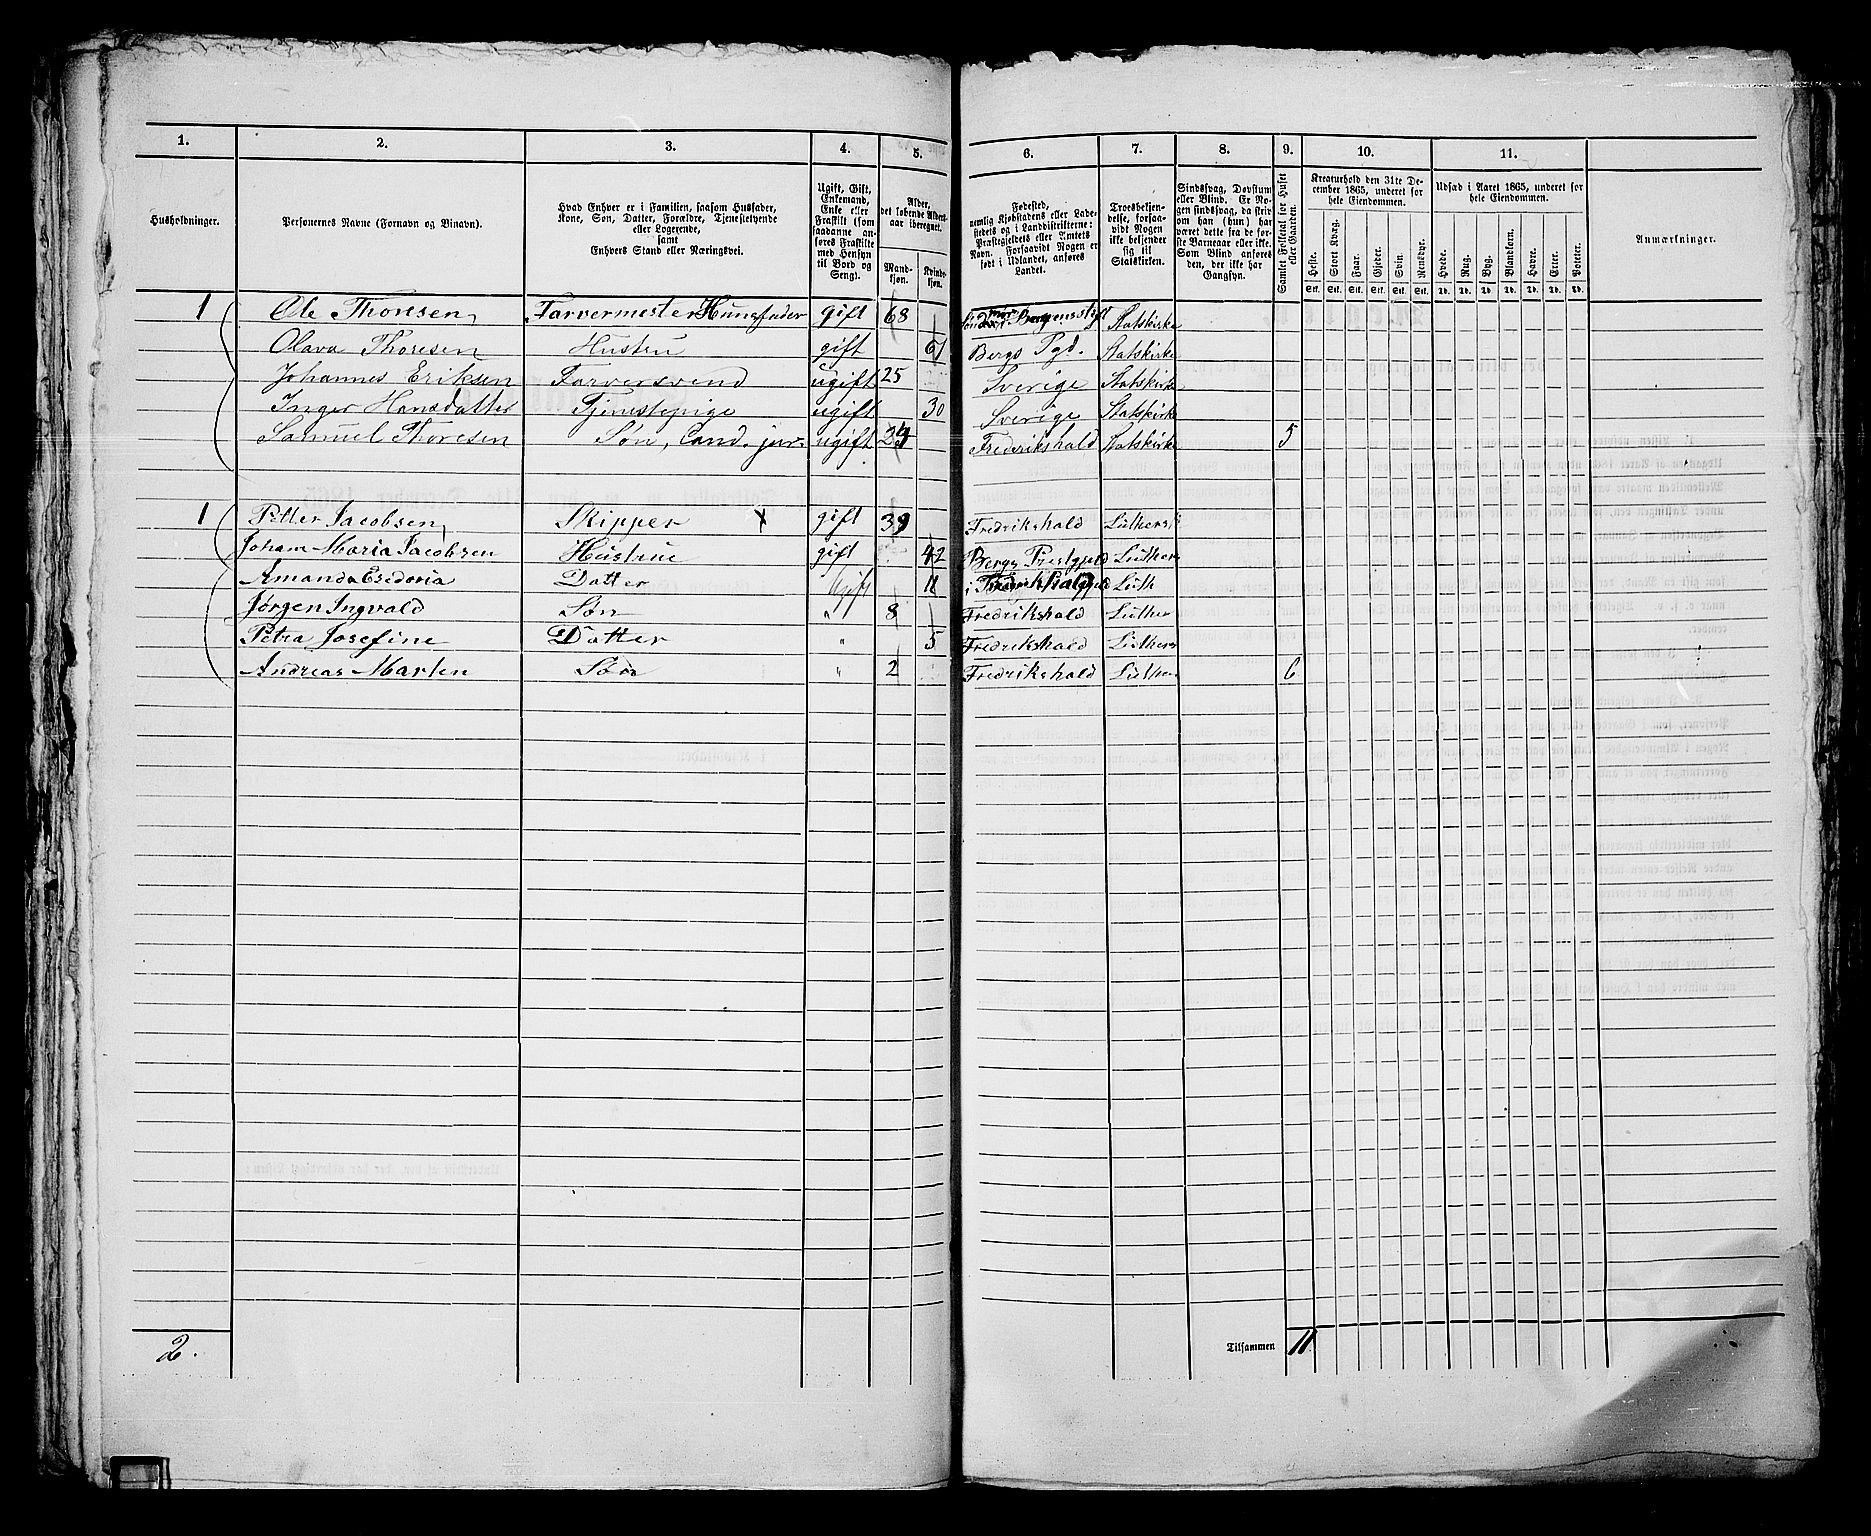 1. 2. 3. 4. 5. 6. 7. 8. 9. 10. 11.
Husholdninger.
Personernes Navne (Fornavn og Binavn).
Hvad Enhver er i Familien, saasom Husfader,
Kone, Søn, Datter, Forældre, Tjenestetyende
eller Logerende,
samt
Enhvers Stand eller Næringsvei.
Ugift, Gift,
Enkemand,
Enke eller
Fraskilt (som
saadanne an-
føres Fraskilte
med Hensyn
til Bord og
Seng).
Alder,
det løbende Alders-
aar iberegnet.
Mand-
kjøn.
Kvind-
kjøn.
Fødested,
nemlig Kjøbstadens eller Lade-
stedets og i Landdistrikterne:
Præstegjeldets eller Amtets
Navn. Forsaavidt Nogen er
født i Udlandet, anføres
Landet.
Troesbekjen-
delse, forsaa-
vidt Nogen
ikke bekjender
sig til
Statskirken.
Sindssvag, Døvstum
eller Blind. Er No-
gen sindssvag, da skriv
om han (hun) har
været dette fra de før-
ste Barneaar eller ikke.
Som Blind anføres
den, der ikke har
Gangsyn.
Samlet Folketal for Huset
eller Gaarden.
Kreaturhold den 31te De-
cember 1865, underet for
hele Eiendommen.
Heste. Stort Kvæg. Faar. Gjeder. Svin. Rensdyr.
Stk. Stk. Stk. Stk. Stk. Stk.
Udsæd i Aaret 1865, underet for
hele Eiendommen.
Hvede. Rug. Byg. Blandkorn. Havre. Erter. Poteter.
Td. Td. Td. Td. Td. Td. Td.
Anmærkninger.
1 Ole Thoresen Farvermester Huusfader gift 68 Bergensstift Statskirke
Olava Thoresen Hustru gift 61 Bergs Pgd. Statskirke
Johannes Eriksen Farversvend ugift 25 Sverige Statskirke
Inger Hansdatter Tjenestepige ugift 30 Sverige Statskirke
Samuel Thoresen Søn, Cand. jur. ugift Frederikshald Statskirke 5
1 Petter Jacobsen Skipper x gift 39 Fredrikshald Luthersk
Joham Maria Jacobsen Hustrue gift 42 Bergs Prestgjeld Luthers
Amanda Esedoria Datter Ugift 11 i Luth
Jørgen Ingvald Søn " 8 Fredrikshald Luther
Petra Josefine Datter " 5 Fredrikshald Luthers
Andreas Marten Søn " 2 Fredrikshald Luther 6
2. Tilsammen 11